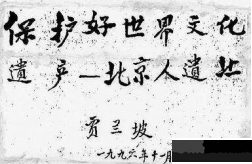 保护好世界文化
遗产—北京人遗址
贾兰坡
一九九六年十一月